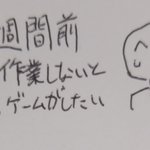 週間前
作業しないと
ゲームがしたい